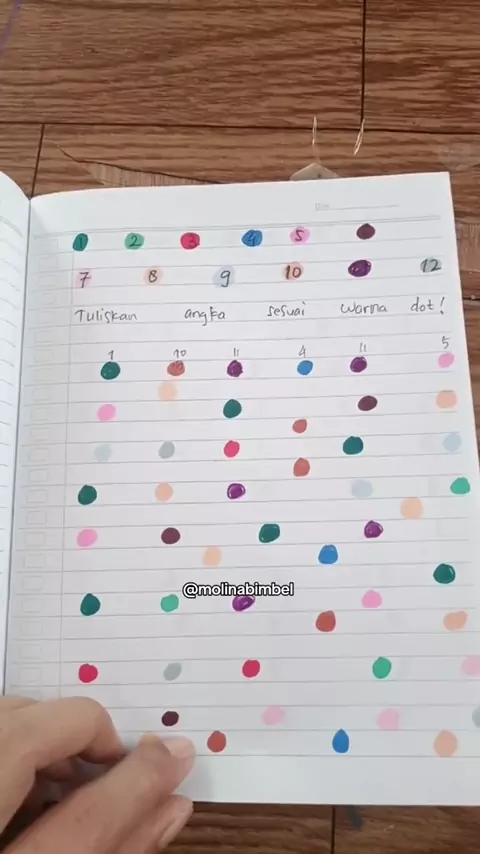 1 2 3 4 5
7 8 9 10 12
Tuliskan angka sesuai warna dot!
1 10 11 4 11 5
@molinabimbel